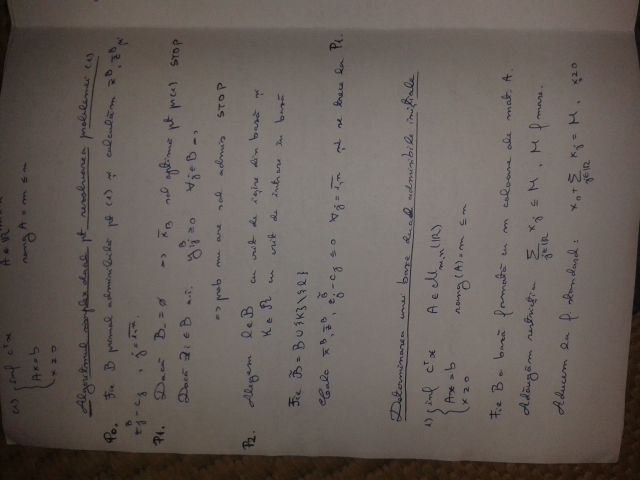 (1) { inf cᵀx A ∈ ℝ
Ax = b rang A = m ≤ n
x ≥ 0
Algoritmul simplex dual pt rezolvarea problemei (1)
P0. Fie B primal admisibilă pt (1) și calculăm x̄ᴮ, z̄ᴮ,
zⱼᴮ - cⱼ , j = 1,n.
P1. Dacă B₋ = ∅ => x̄ᴮ sol optimă pt pr(1) STOP
Dacă ∃ i ∈ B a.î. yᵢⱼᴮ ≥ 0 ∀ j ∈ B =>
=> prob nu are sol admis STOP
P2. Alegem l ∈ B cu crit de ieșire din bază și
k ∈ R cu crit de intrare în bază
Fie B̃ = B ∪ {k} \ {l}
Calc x̄ᴮ, z̄ᴮ, zⱼᴮ̃ - cⱼ ≤ 0 ∀ j = 1,n și se trece la P1.
Determinarea unei baze dual admisibile inițiale
1) { inf cᵀx A ∈ ℳm,n(ℝ)
Ax = b rang(A) = m ≤ n
x ≥ 0
Fie B = bază formată cu m coloane ale mat. A.
Adăugăm restricția ∑ j∈R xⱼ ≤ M , M f mare.
Aducem la f standard: x₀ + ∑ j∈R xⱼ = M, x₀ ≥ 0